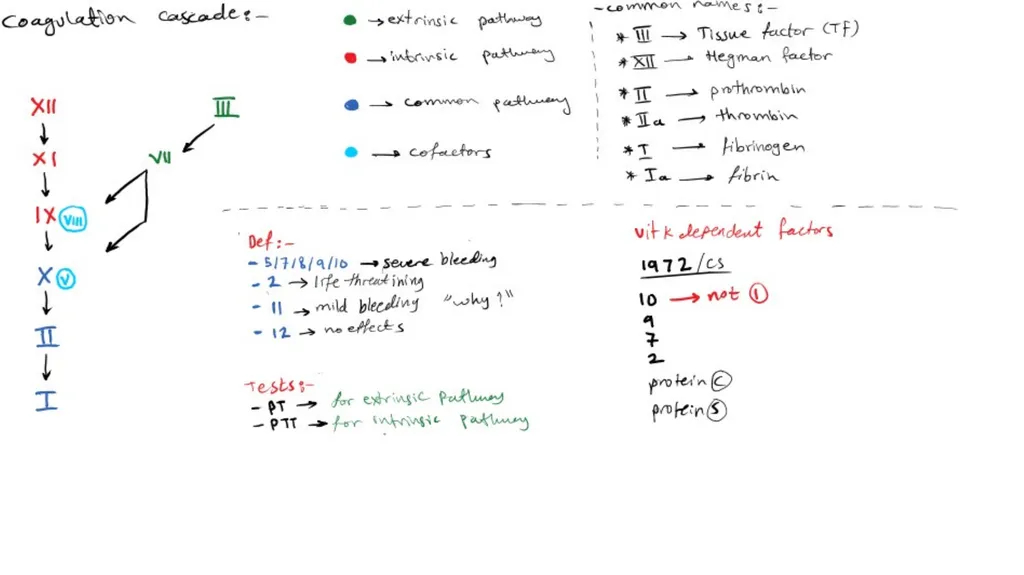 Coagulation cascade:-
XII
III
XI
VII
IX VIII
X V
II
I
→ extrinsic pathway
→ intrinsic pathway
→ common pathway
→ cofactors
- common names:-
* III → Tissue factor (TF)
* XII → Hegman factor
* II → prothrombin
* IIa → thrombin
* I → fibrinogen
* Ia → fibrin
Def:-
- 5/7/8/9/10 → severe bleeding
- 2 → life threatining
- 11 → mild bleeding "why?"
- 12 → no effects
Tests:-
- PT → for extrinsic pathway
- PTT → for intrinsic pathway
vit k dependent factors
1972/CS
10 → not 1
9
7
2
protein C
protein S